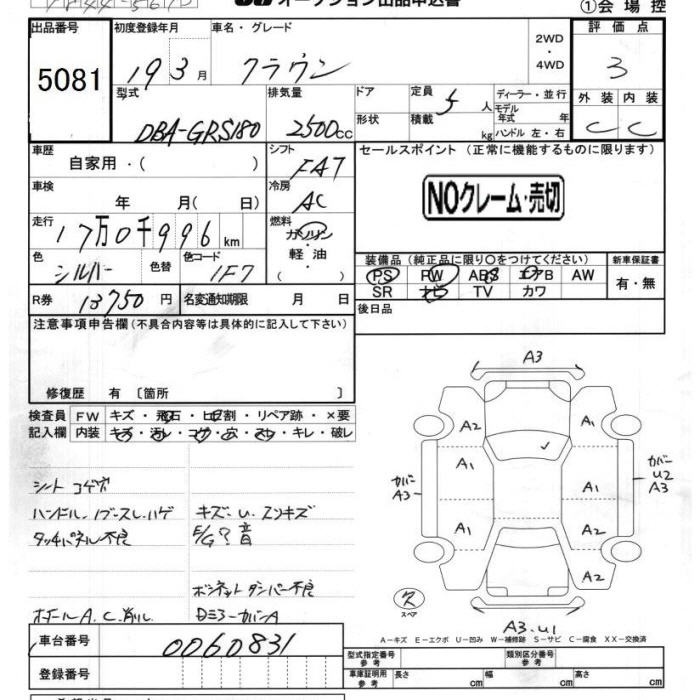 オークション出品申込書 ①会場控
出品番号 初度登録年月 車名・グレード 評価点
5081 19 3月 クラウン 2WD ・ 4WD 3
型式 排気量 ドア 定員 ディーラー・並行 外装 内装
DBA-GRS180 2500cc 形状 積載 5人 kg モデル年式 年 ハンドル 左・右 C C
車歴 シフト セールスポイント (正常に機能するものに限ります)
自家用・( ) FAT
車検 冷房 NOクレーム・売切
年 月( 日) AC
走行 燃料
17万0千996km ガソリン
色 色替 色コード 軽油 装備品 (純正品に限り○をつけてください) 新車保証書
シルバー 1F7 ( ) PS PW ABS エアB AW 有・無
SR ナビ TV カワ
R券 13750円 名変通知期限 月 日 後日品
注意事項申告欄(不具合内容等は具体的に記入して下さい)
修復歴 有 〔箇所 〕
検査員 FW キズ・飛石・ヒビ割・リペア跡・×要
記入欄 内装 キズ・汚レ・コゲ・穴・スレ・キレ・破レ
シートコゲ穴
ハンドル、ノブスレ、ハゲ キズ U. エンキズ
タッチパネル不良 E/G?音
ボンネットダンパー不良
ホイールA.C.削れ Dミラーカバー A
A3
A2 A2
A1 カバー U2 A3
カバー A3 A1 A1
A1 A1
A2
ス スペア
A3.U1
A-キズ E-エクボ U-凹み W-補修跡 S-サビ C-腐食 XX-交換済
車台番号 0060831
型式指定番号 参考 類別区分番号 参考
登録番号 車庫証明用 参考 長さ cm 幅 cm 高さ cm